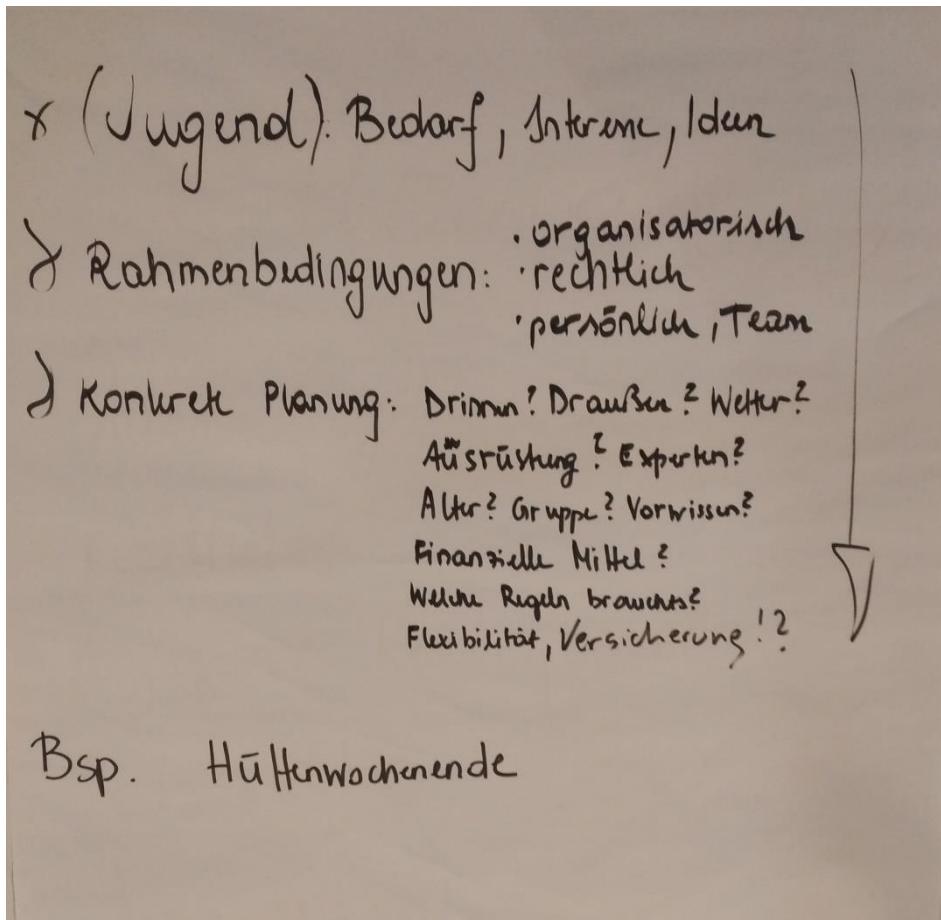 (Jugend): Bedarf, Interesse, Ideen
Rahmenbedingungen: · organisatorisch
· rechtlich
· persönlich, Team
Konkrete Planung: Drinnen? Draußen? Wetter?
Ausrüstung? Experten?
Alter? Gruppe? Vorwissen?
Finanzielle Mittel?
Welche Regeln brauchts?
Flexibilität, Versicherung!?
Bsp. Hüttenwochenende